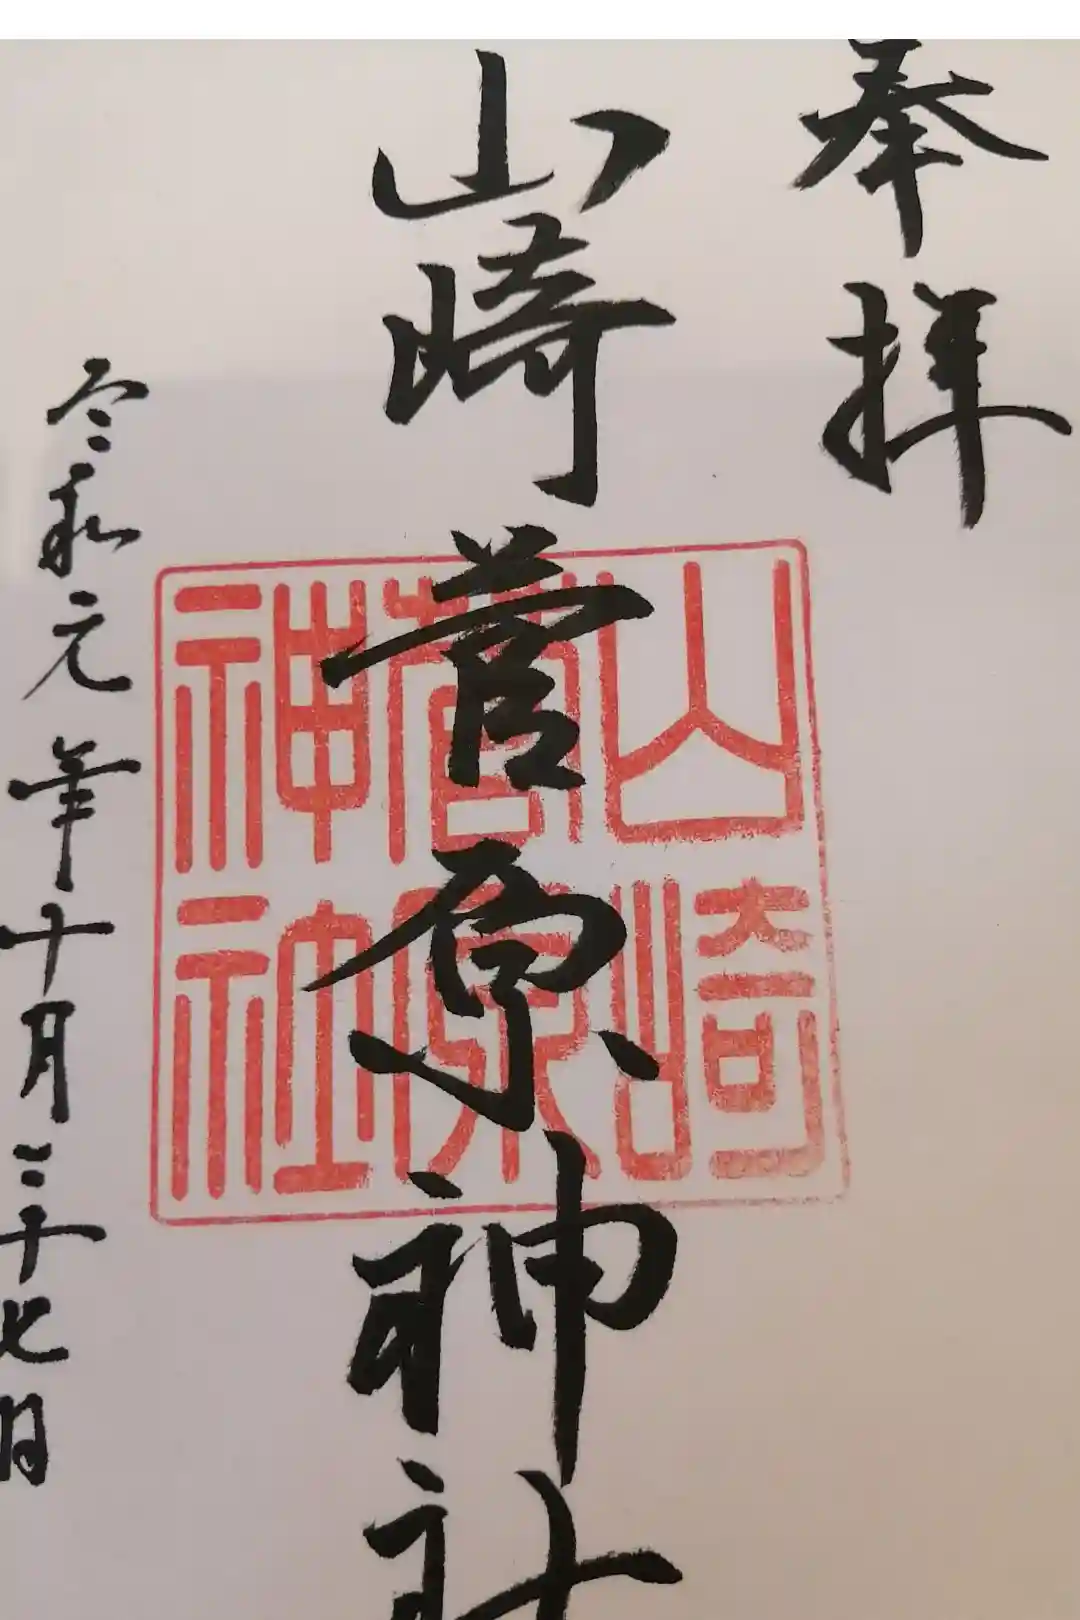 奉拝
山崎菅原神社
令和元年十月二十七日
山崎
菅原
神社